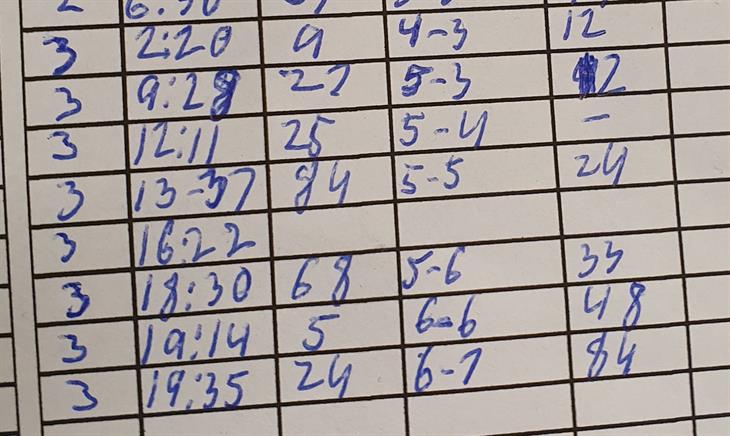 3 2:20 9 4-3 12
3 9:28 27 5-3 12
3 12:11 25 5-4 -
3 13-37 84 5-5 24
3 16:22
3 18:30 68 5-6 33
3 19:14 5 6-6 48
3 19:35 24 6-7 84